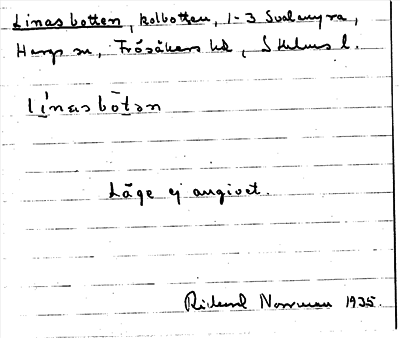 Linasbotten, kolbotten, 1-3 Svalmyra,
Hargs sn, Frösåkers hd, Sthlms l.
línasbòtən
Läge ej angivet.
Rickard Norrman 1935.